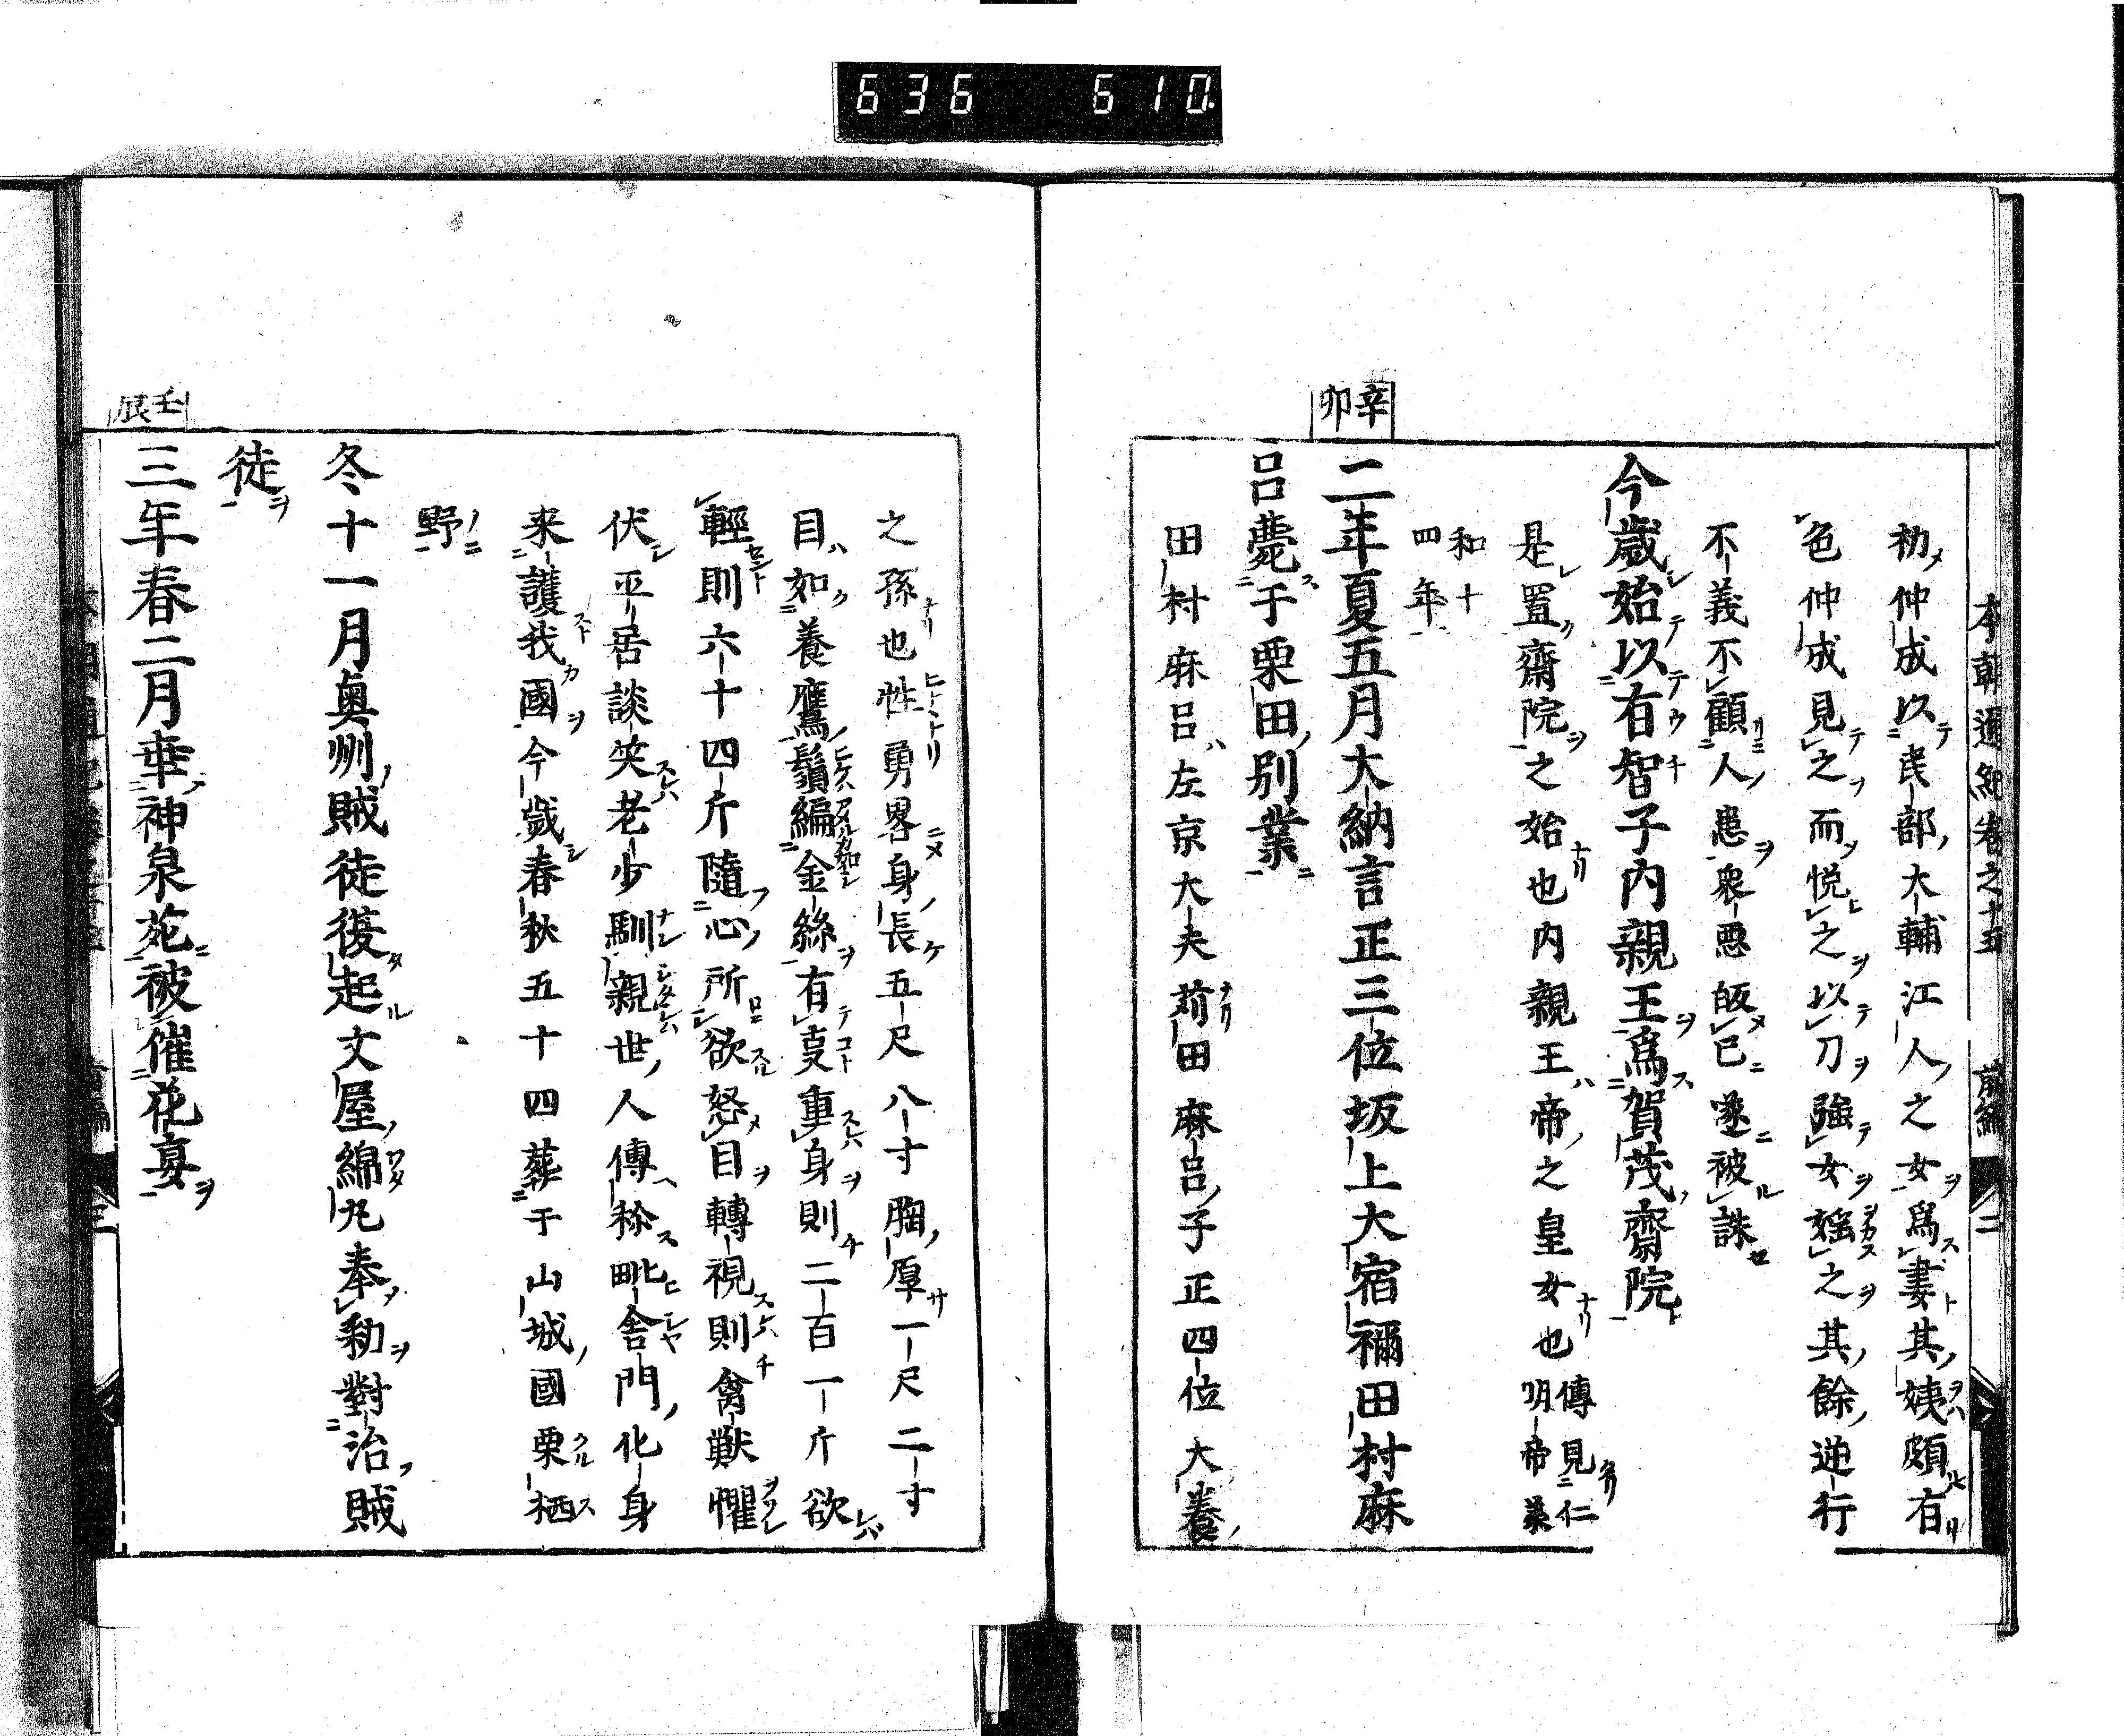 636 610
本朝通紀卷之十五 前編 二
初仲成以民部大輔江人之女爲妻其姨頗有
色仲成見之而悦之以刀強女婬之其餘逆行
不義不顧人患衆惡皈已遂被誅
今歳始以有智子内親王爲賀茂齋院
是置齋院之始也内親王帝之皇女也傳見仁
明帝羕
和十
四年
辛卯
二年夏五月大納言正三位坂上大宿禰田村麻
呂薨于栗田別業
田村麻呂左京大夫苅田麻呂子正四位大養
之孫也性勇畧身長五尺八寸胸厚一尺二寸
目如養鷹鬚編金絲有叓重身則二百一斤欲
輕則六十四斤隨心所欲怒目轉視則禽獣懼
伏平居談笑老少馴親世人傳称毗舎門化身
来護我國今歳春秋五十四葬于山城國栗栖
野
冬十一月奥州賊徒復起文屋綿丸奉勅對治賊
徒
壬辰
三年春二月幸神泉苑被催花宴